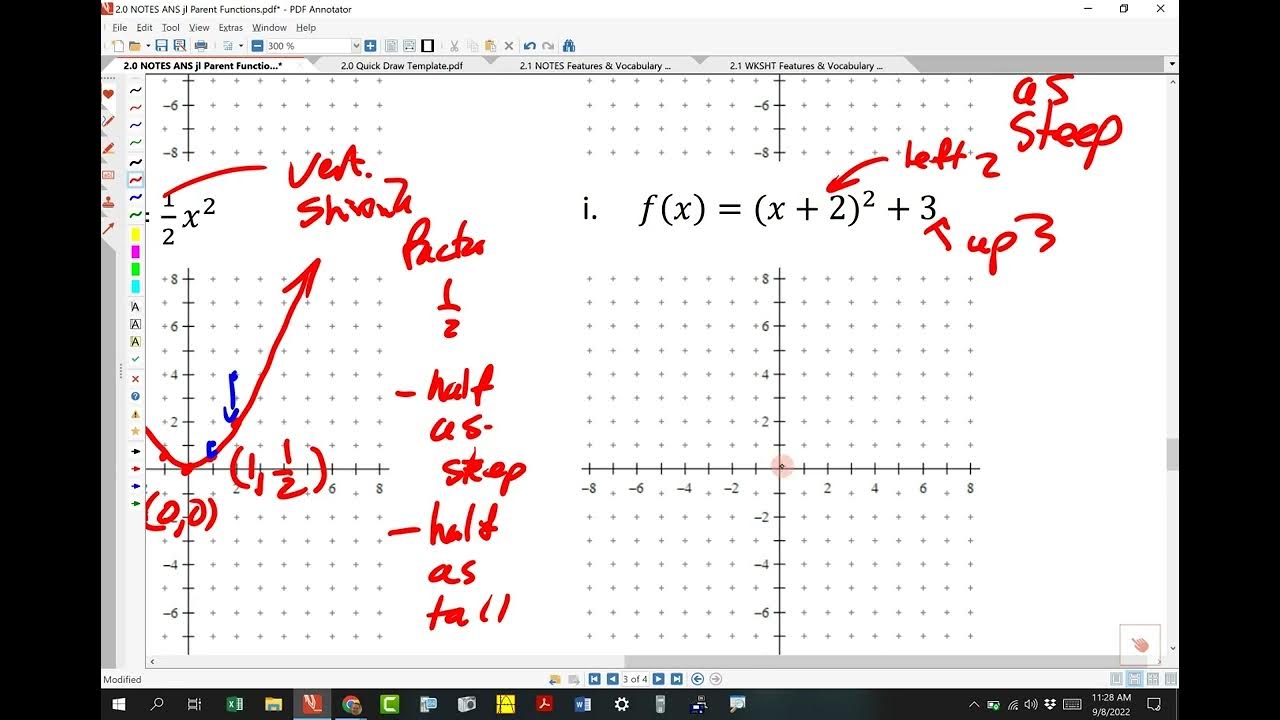 2.0 NOTES ANS jl Parent Functions.pdf* - PDF Annotator
File Edit Tool View Extras Window Help
300 %
2.0 NOTES ANS jl Parent Functio...* 2.0 Quick Draw Template.pdf 2.1 NOTES Features & Vocabulary ... 2.1 WKSHT Features & Vocabulary ...
-6
-8
-6
-8
as
steep
vert.
shrink
factor
1/2
left 2
= 1/2 x²
i. f(x) = (x + 2)² + 3
up 3
8
6
4
2
2
8
(1, 1/2)
(0,0)
-4
-6
- half
as
steep
- half
as
tall
8
6
4
2
-8 -6 -4 -2 2 4 6 8
-2
-4
-6
Modified
3 of 4
11:28 AM
9/8/2022